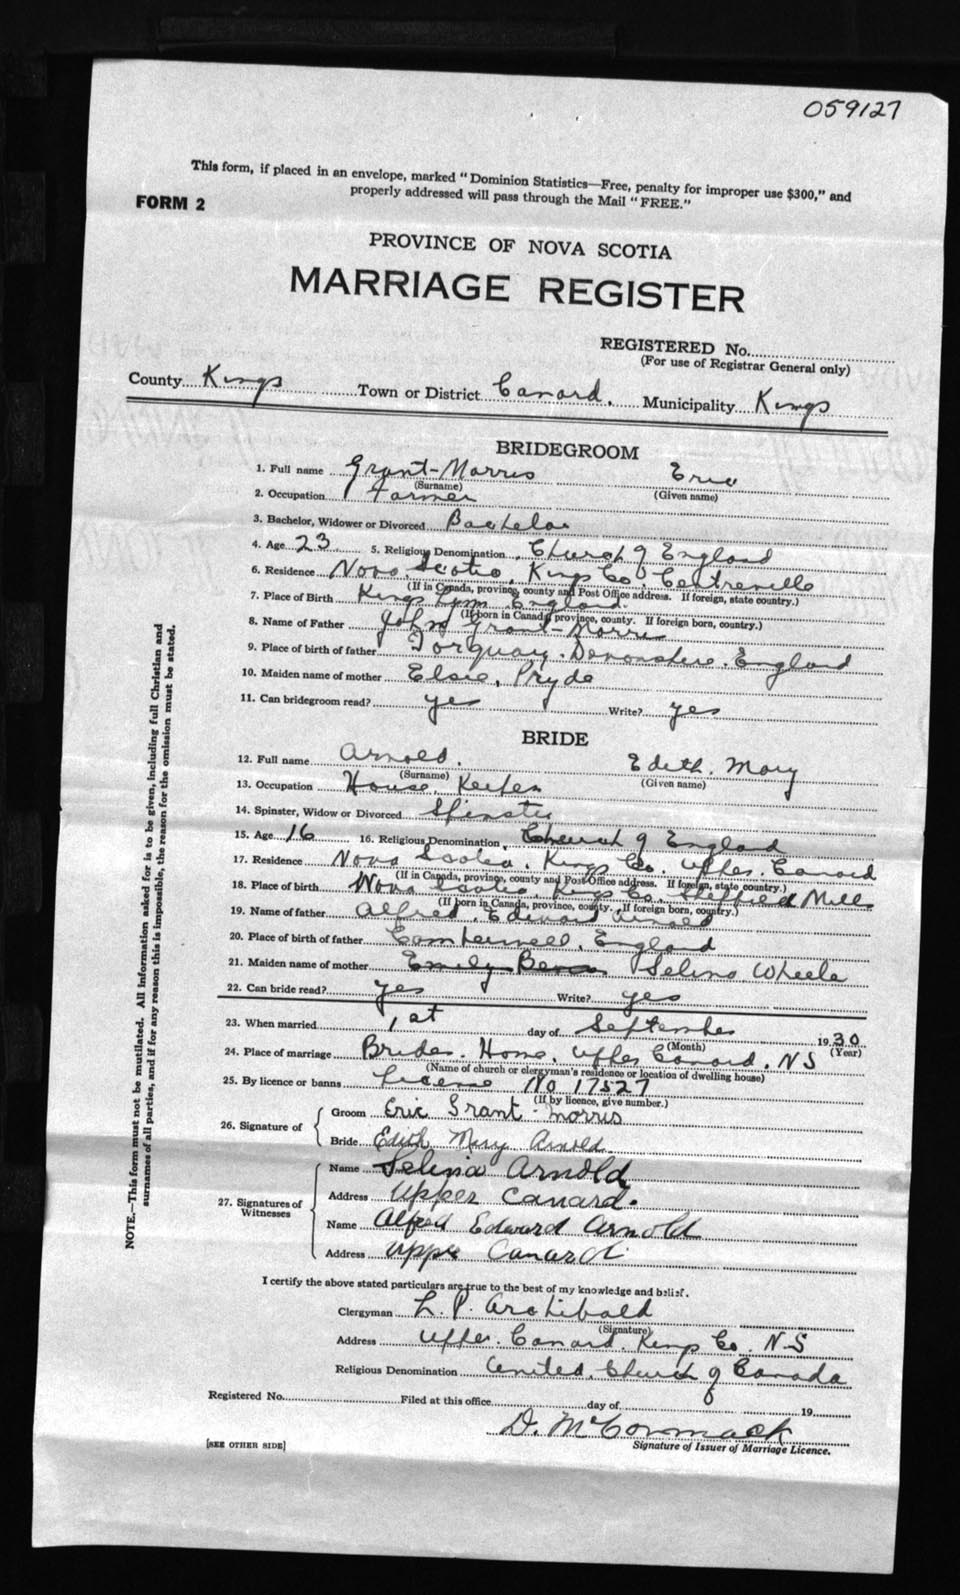 059127
This form, if placed in an envelope, marked "Dominion Statistics—Free, penalty for improper use $300," and
properly addressed will pass through the Mail "FREE."
FORM 2
PROVINCE OF NOVA SCOTIA
MARRIAGE REGISTER
REGISTERED No.
(For use of Registrar General only)
County Kings Town or District Canard. Municipality Kings
BRIDEGROOM
1. Full name Grant-Morris Eric
(Surname) (Given name)
2. Occupation Farmer
3. Bachelor, Widower or Divorced Bachelor
4. Age 23 5. Religious Denomination Church of England
6. Residence Nova Scotia, Kings Co Centreville
(If in Canada, province, county and Post Office address. If foreign, state country.)
7. Place of Birth Kings Lynn England.
(If born in Canada, province, county. If foreign born, country.)
8. Name of Father John Grant-Morris
9. Place of birth of father Torquay. Devonshire. England
10. Maiden name of mother Elsie, Pryde
11. Can bridegroom read? yes Write? yes
BRIDE
12. Full name Arnold. Edith. Mary
(Surname) (Given name)
13. Occupation House Keeper
14. Spinster, Widow or Divorced Spinster
15. Age 16 16. Religious Denomination Church of England
17. Residence Nova Scotia, Kings Co. Upper Canard
(If in Canada, province, county and Post Office address. If foreign, state country.)
18. Place of birth Nova Scotia, Kings Co, Sheffield Mills
(If born in Canada, province, county. If foreign born, country.)
19. Name of father Alfred, Edward Arnold
20. Place of birth of father England
21. Maiden name of mother Emily Selina Wheele
22. Can bride read? yes Write? yes
23. When married 1st day of September 1930
(Month) (Year)
24. Place of marriage Brides. Home, Upper Canard, NS
(Name of church or clergyman's residence or location of dwelling house)
25. By licence or banns License No 17527
(If by licence, give number.)
26. Signature of
Groom Eric Grant-Morris
Bride Edith Mary Arnold
27. Signatures of Witnesses
Name Selina Arnold
Address Upper Canard.
Name Alfred Edward Arnold
Address Upper Canard
I certify the above stated particulars are true to the best of my knowledge and belief.
Clergyman L. P. Archibald
(Signature)
Address Upper. Canard. Kings Co. N-S
Religious Denomination United. Church of Canada
Registered No. Filed at this office day of 19
D. McCormack
Signature of Issuer of Marriage Licence.
[SEE OTHER SIDE]
NOTE.—This form must not be mutilated. All information asked for is to be given, including full Christian and
surnames of all parties, and if for any reason this is impossible, the reason for the omission must be stated.